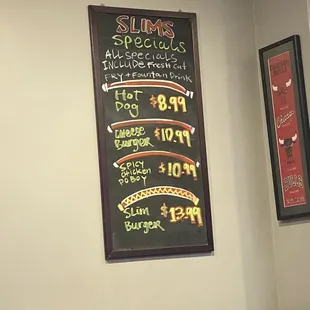 SLIMS
Specials
ALL SPECIALS
INCLUDE FRESH CUT
FRY + Fountain Drink
HOT
DOG $8.99
CHEESE
BURGER $10.99
SPICY
CHICKEN
PO BOY $10.99
SLIM
BURGER $13.99
BULLS